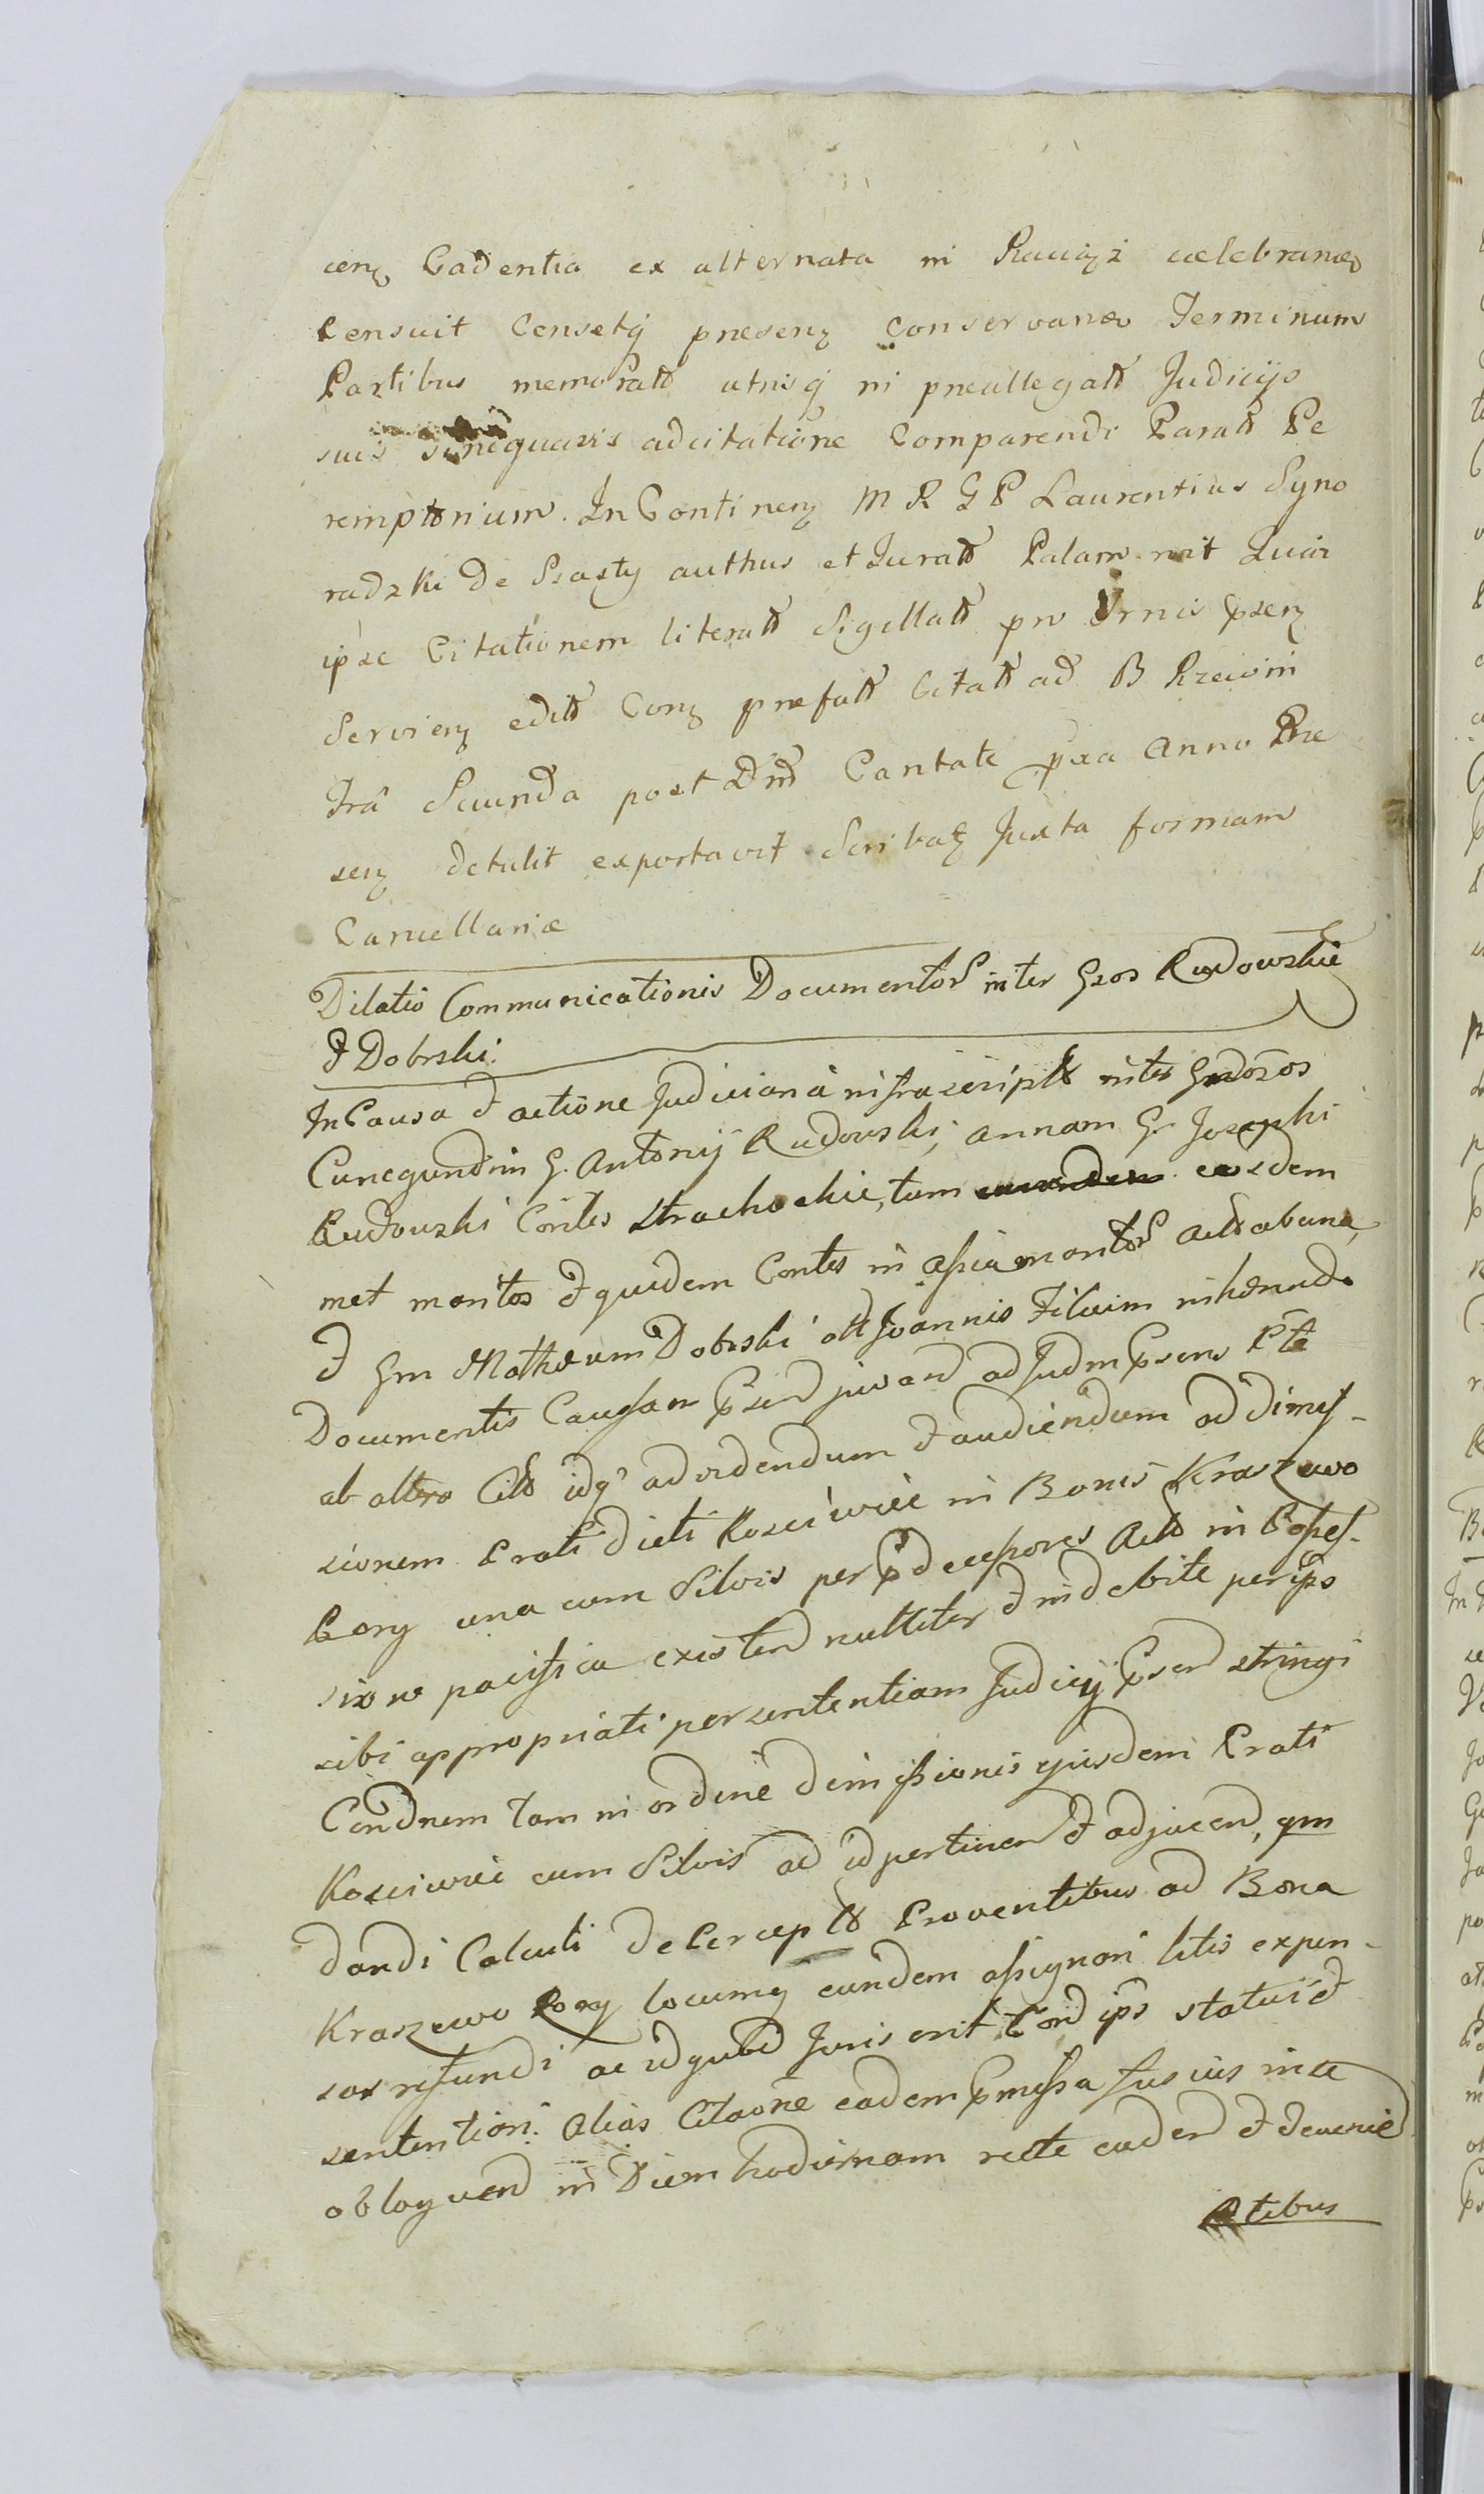 Cadentia ex alternata in Raciąż celebranδ
Censuit Censetq presenę Conservanδ Terminum
Partibus memoratt utrisq in preallegatt Judicijs
suis sinequavis adcitatione Comparendi Paratt Pe
remptorium. In Continenę M R G P Laurentius Syno
radzki de authus et Juratt Palam Quia
ipse Citationem literatt Sigillatt pro
Servienę editt Conę prefatt Citatt ad B Rzewin
fra Secunda post Dnd Cantate pxa Anno Pre
senę detulit exportavit Scribatę Juxta formam
Cancellariæ
Dilatio Communicationis Documentor inter Gsos Rudowskie
et Dobrski
In Causa et actione Judiciaria infrascriptt inter
Cunegundim G. Antonij Rudowski, Annam G. Josephi
Rudowski Contes Strachockie, tum eosdem
met maritos et quidem Contes in assia maritor
et Gm Mathæum Dobrski olt Joannis Filium
Documentis Caussam juvand ad Judm Psens Pte
ab altera idq ad videndum et audiendum ad dimis-
sionem Prati dicti Kosciwiec in Bonis Kraszewo
Rory una cum Silvis per Pdecessores in Posses-
sione pacifica existend nulliter et indebite per ips
sibi appropriati per sententiam Judicij Psend stringi
Condnem tam in ordine dimissionis ejusdem Prati
Kosciwiec cum Silvis ad id pertinen et adjacend, qm
dandi Calculi de Perceptt Proventibus ad Bona
Kraszewo Rory locumq eundem assignari litis expen-
sas refundi ac id quod Juris erit ips statui et
sententiari. Alias Citaone eadem Pmissa fusius in se
obloquend in Diem hodiernam recte caden et devenied
Ptibus